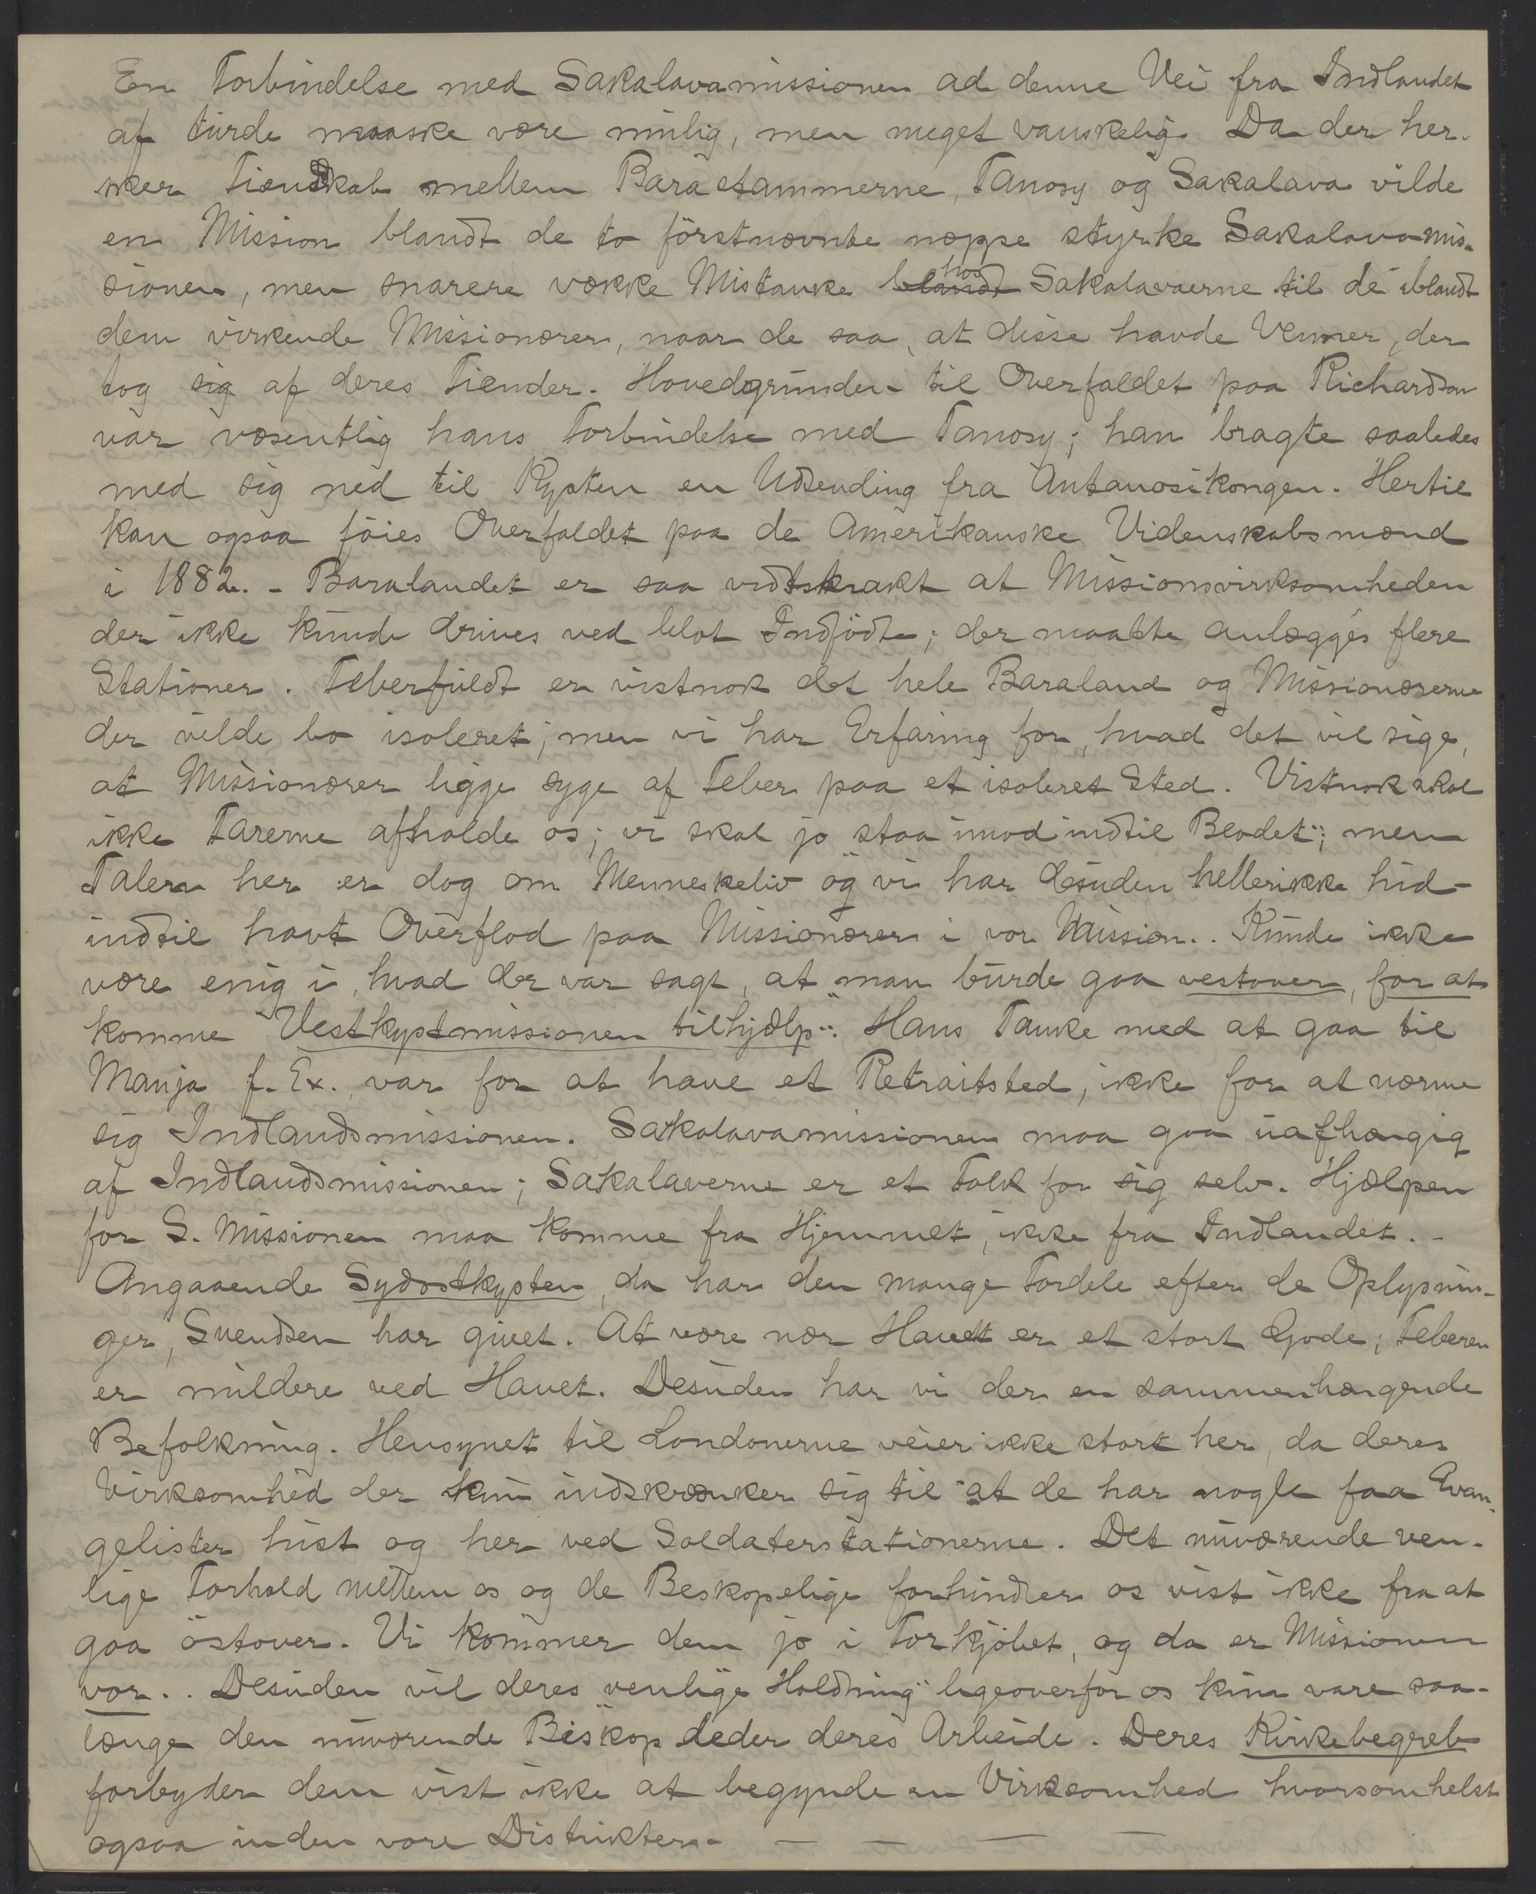 En Forbindelse med Sakalavamissionen ad denne Vei fra Indlandet
af turde maaske være mulig, men meget vanskelig. Da der her-
sker Fiendskab mellem Barastammerne, Tanosy og Sakalava vilde
en Mission blandt de to förstnævnte næppe styrke Sakalavamis-
sionen, men snarere vække Mistanke blandt hos Sakalavaerne til de iblandt
dem virkende Missionærer, naar de saa, at disse havde Venner, der
tog sig af deres Fiender. Hovedgrunden til Overfaldet paa Richardson
var væsentlig hans Forbindelse med Tanosy; han bragte saaledes
med sig ned til Kysten en Udsending fra Antanosikongen. Hertil
kan ogsaa föies Overfaldet paa de Amerikanske Videnskabsmænd
i 1882. - Baralandet er saa vidtstrakt at Missionsvirksomheden
der ikke kunde drives ved blot Indfödte; der maatte anlægges flere
Stationer. Feberfuldt er vistnok det hele Baraland og Missionærerne
der vilde bo isoleret; men vi har Erfaring for, hvad det vil sige,
at Missionærer ligge syge af Feber paa et isoleret Sted. Vistnok skal
ikke Farerne afholde os; vi skal jo "staa imod indtil Blodet"; men
Talen her er dog om Menneskeliv og vi har desuden hellerikke hid-
indtil havt Overflod paa Missionærer i vor Mission.. Kunde ikke
være enig i, hvad der var sagt, at man burde gaa vestover, for at
komme "Vestkystmissionen tilhjælp". Hans Tanke med at gaa til
Manja f. Ex. var for at have et Retraitsted, ikke for at nærme
sig Indlandsmissionen. Sakalavamissionen maa gaa uafhængig
af Indlandsmissionen; Sakalaverne er et Folk for sig selv. Hjælpen
for S. Missionen maa komme fra Hjemmet, ikke fra Indlandet. -
Angaaende Sydostkysten, da har den mange Fordele efter de Oplysnin-
ger, Svendsen har givet. At være nær Havet er et stort Gode; Feberen
er mildere ved Havet. Desuden har vi der en sammenhængende
Befolkning. Hensynet til Londonerne veier ikke stort her, da deres
Virksomhed der kun indskrænker sig til at de har nogle faa Evan-
gelister hist og her ved Soldaterstationerne. Det nuværende ven-
lige Forhold mellem os og de Beskopelige forhindrer os vist ikke fra at
gaa östover. Vi kommer dem jo i Forkjöbet, og da er Missionen
vor.. Desuden vil deres "venlige Holdning" ligeoverfor os kun vare saa-
længe den nuværende Biskop leder deres Arbeide. Deres Kirkebegreb
forbyder dem vist ikke at begynde en Virksomhed hvorsomhelst
ogsaa inden vore Distrikter. - — — — —